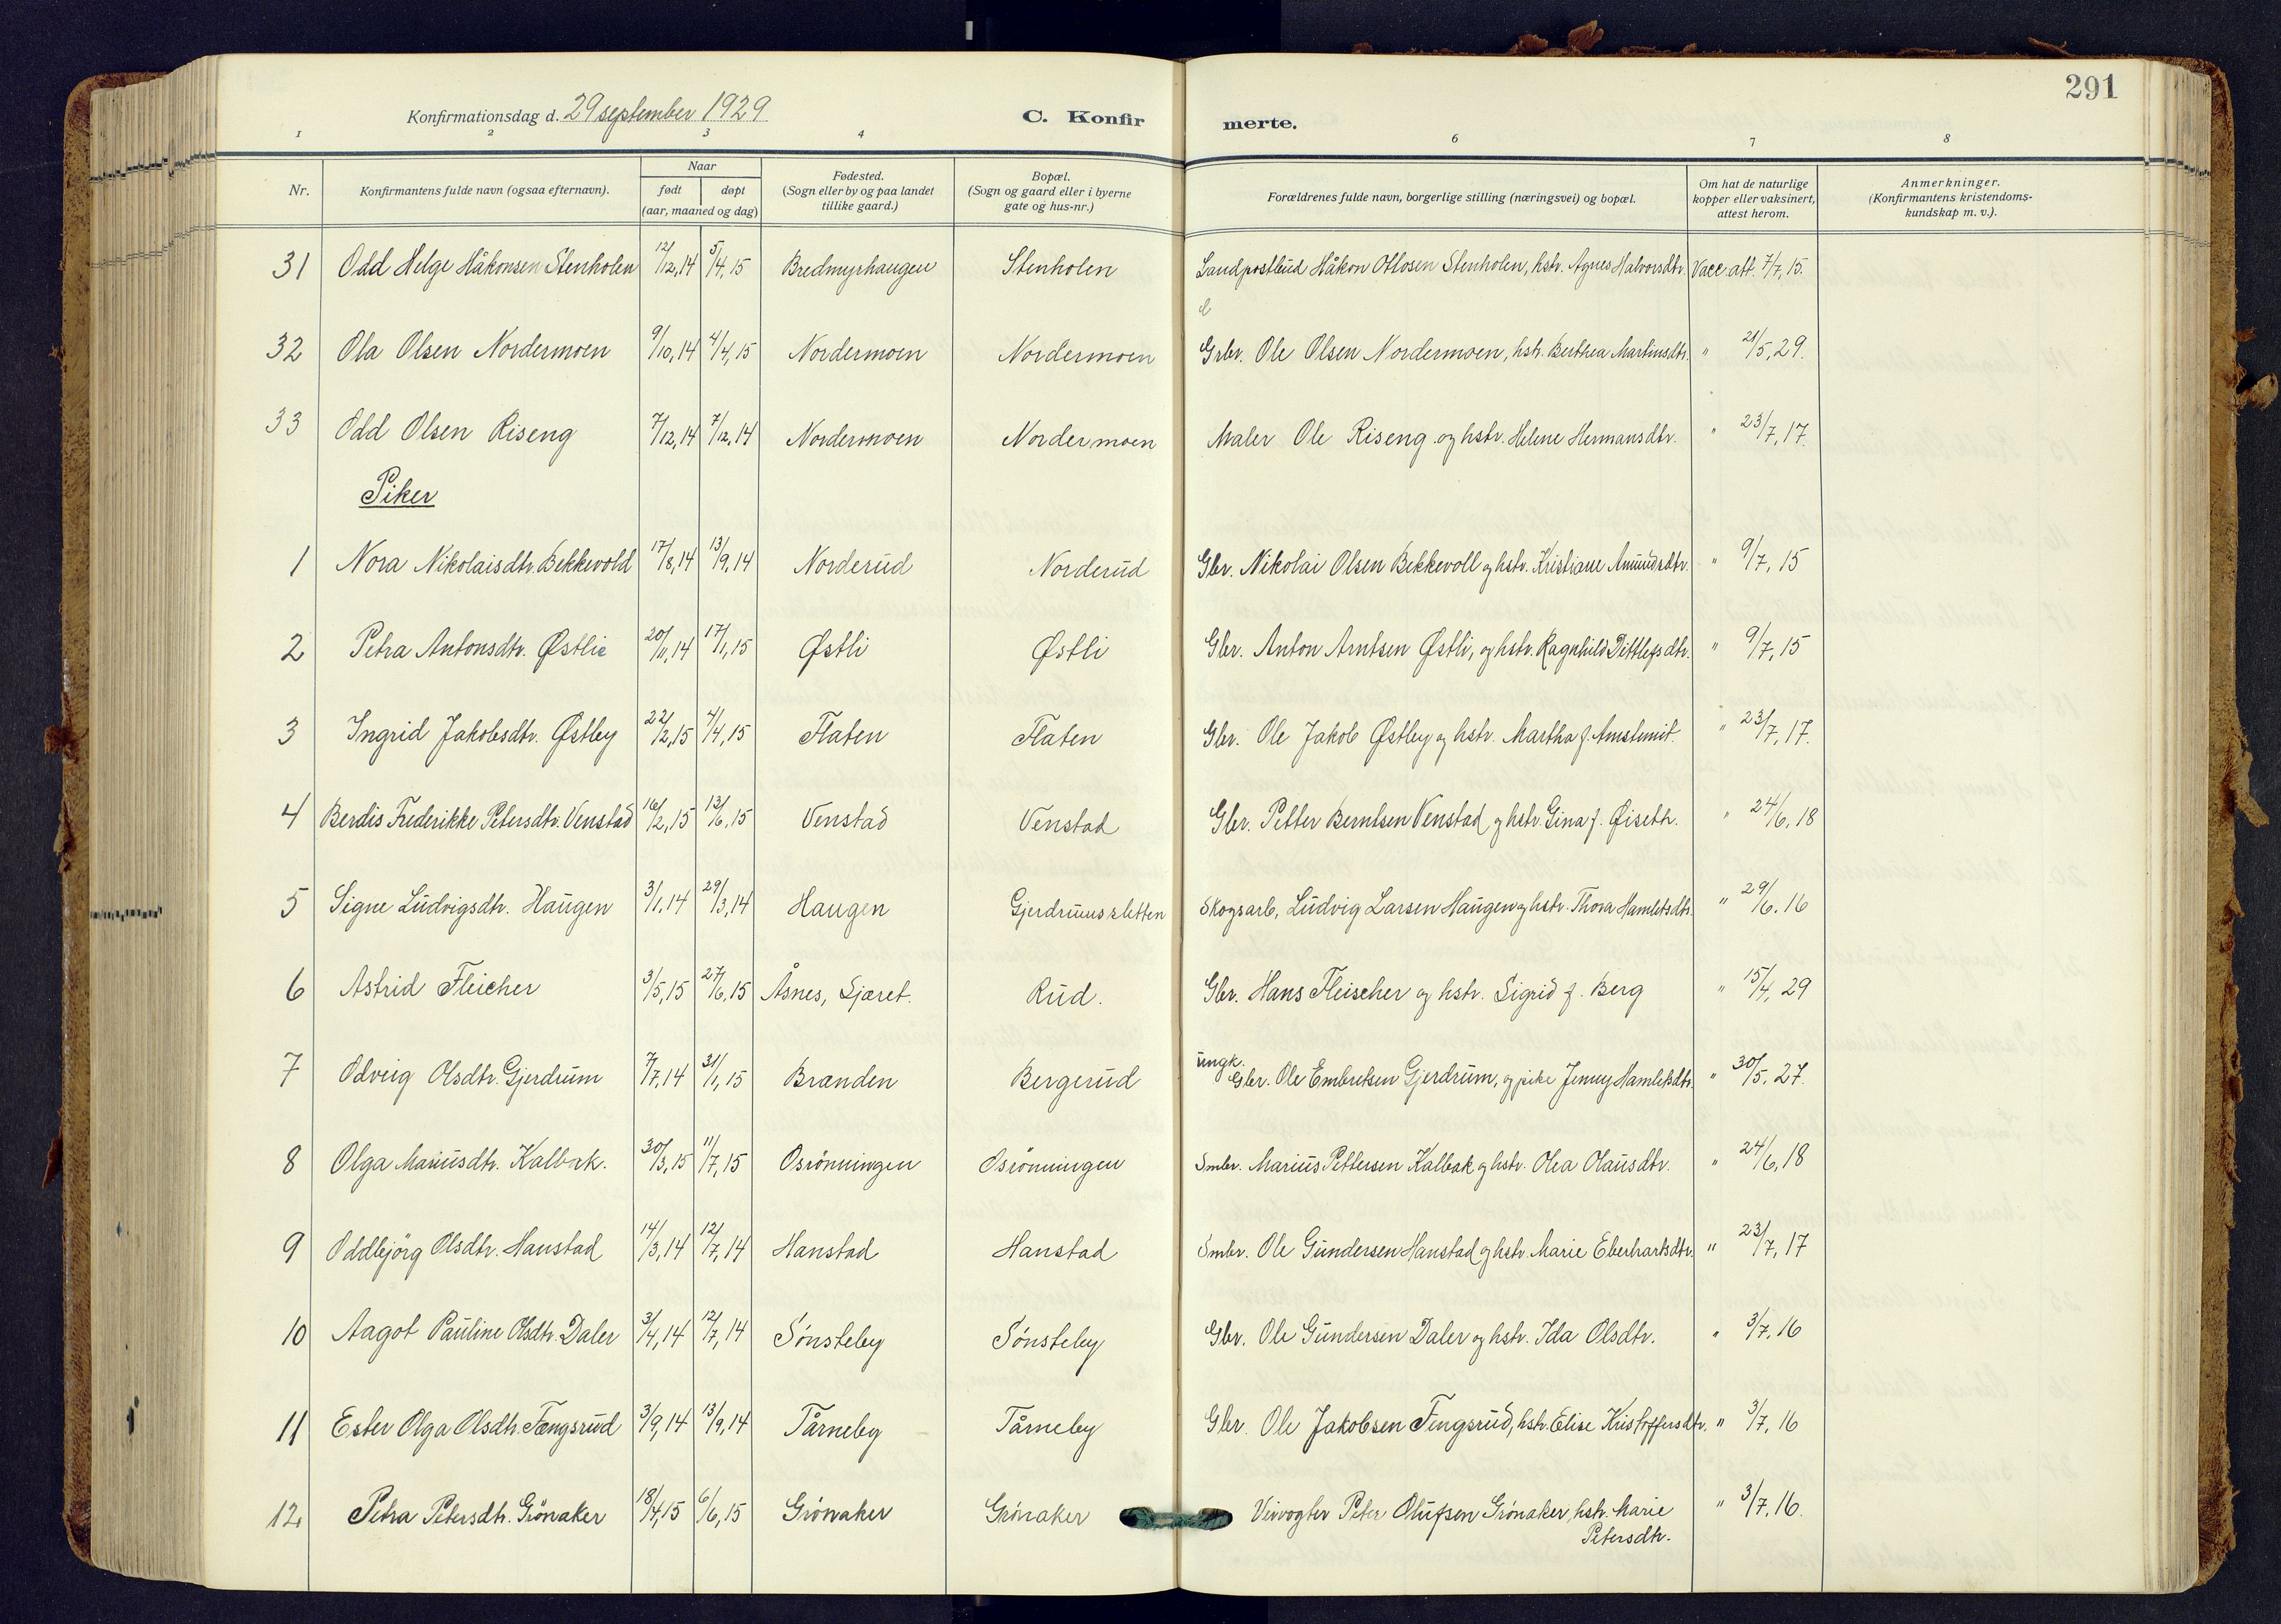 291
Konfirmationsdag d. 29 september 1929 C. Konfirmerte.
1 2 3 4 6 7 8
Nr. Konfirmantens fulde navn (ogsaa efternavn). Naar født døpt (aar, maaned og dag) Fødested. (Sogn eller by og paa landet tillike gaard.) Bopæl. (Sogn og gaard eller i byerne gate og hus-nr.) Forældrenes fulde navn, borgerlige stilling (næringsvei) og bopæl. Om hat de naturlige kopper eller vaksinert, attest herom. Anmerkninger. (Konfirmantens kristendoms-kundskap m. v.).
31 Odd Helge Håkonsen Stenholen 12/12,14 5/4,15 Bredmyrhaugen Stenholen Landpostbud Håkon Ottosen Stenholen, hstr. Agnes Halvorsdtr. Vacc. att. 7/7,15.
32 Ola Olsen Nordermoen 9/10,14 4/4,15 Nordermoen Nordermoen Grbr. Ole Olsen Nordermoen, hstr. Berthea Martinsdtr. " 21/5,29.
33 Odd Olsen Riseng 7/12,14 7/12,14 Nordermoen Nordermoen Maler Ole Riseng og hstr. Helene Hermansdtr. " 23/7,17.
Piker
1 Nora Nikolaisdtr. Bekkevold 17/8,14 13/9,14 Norderud Norderud Gbr. Nikolai Olsen Bekkevoll og hstr. Kristiane Amundsdtr. " 9/7,15
2 Petra Antonsdtr. Østlie 20/11,14 17/1,15 Østli Østli Gbr. Anton Arntsen Østli, og hstr. Ragnhild Dittlefsdtr. " 9/7,15
3 Ingrid Jakobsdtr. Østby 22/2,15 4/4,15 Flaten Flaten Gbr. Ole Jakob Østby og hstr. Martha f. " 23/7,17.
4 Berdis Frederikke Petersdtr. Venstad 16/2,15 13/6,15 Venstad Venstad Gbr. Petter Berntsen Venstad og hstr. Gina f. Øiseth. " 24/6,18
5 Signe Ludvigsdtr. Haugen 3/1,14 29/3,14 Haugen Gjerdrumsletten Skogsarb, Ludvig Larsen Haugen og hstr. Thora Hamletsdtr. " 29/6.16
6 Astrid Fleicher 3/5,15 27/6,15 Åsnes, Sjæret. Rud. Gbr. Hans Fleischer og hstr. Sigrid f. Berg " 15/4,29
7 Odveig Olsdtr. Gjerdrum 7/7,14 31/1,15 Branden Bergerud ungk. Gbr. Ole Embretsen Gjerdrum, og pike Jenny Hamletsdtr. " 30/5,27.
8 Olga Mariusdtr. Kalbak. 30/3,15 11/7,15 Osrönningen Osrönningen Smbr. Marius Pettersen Kalbak og hstr. Olea Olausdtr. " 24/6,18
9 Oddbjörg Olsdtr. Hanstad 14/3,14 12/7,14 Hanstad Hanstad Smbr. Ole Gundersen Hanstad og hstr. Marie Eberhartsdtr. " 23/7,17
10 Aagot Pauline Olsdtr. Daler 3/4,14 12/7,14 Sönsteby Sönsteby Gbr. Ole Gundersen Daler og hstr. Ida Olsdtr. " 3/7,16
11 Ester Olga Olsdtr. Fængsrud 3/9,14 13/9,14 Tårneby Tårneby Gbr. Ole Jakobsen Fengsrud, hstr. Elise Kristoffersdtr. " 3/7,16
12 Petra Petersdtr. Grönaker 18/4,15 6/6,15 Grönaker Grönaker Veivogter Peter Olufsen Grönaker, hstr. Marie " 3/7,16.
Petersdtr.